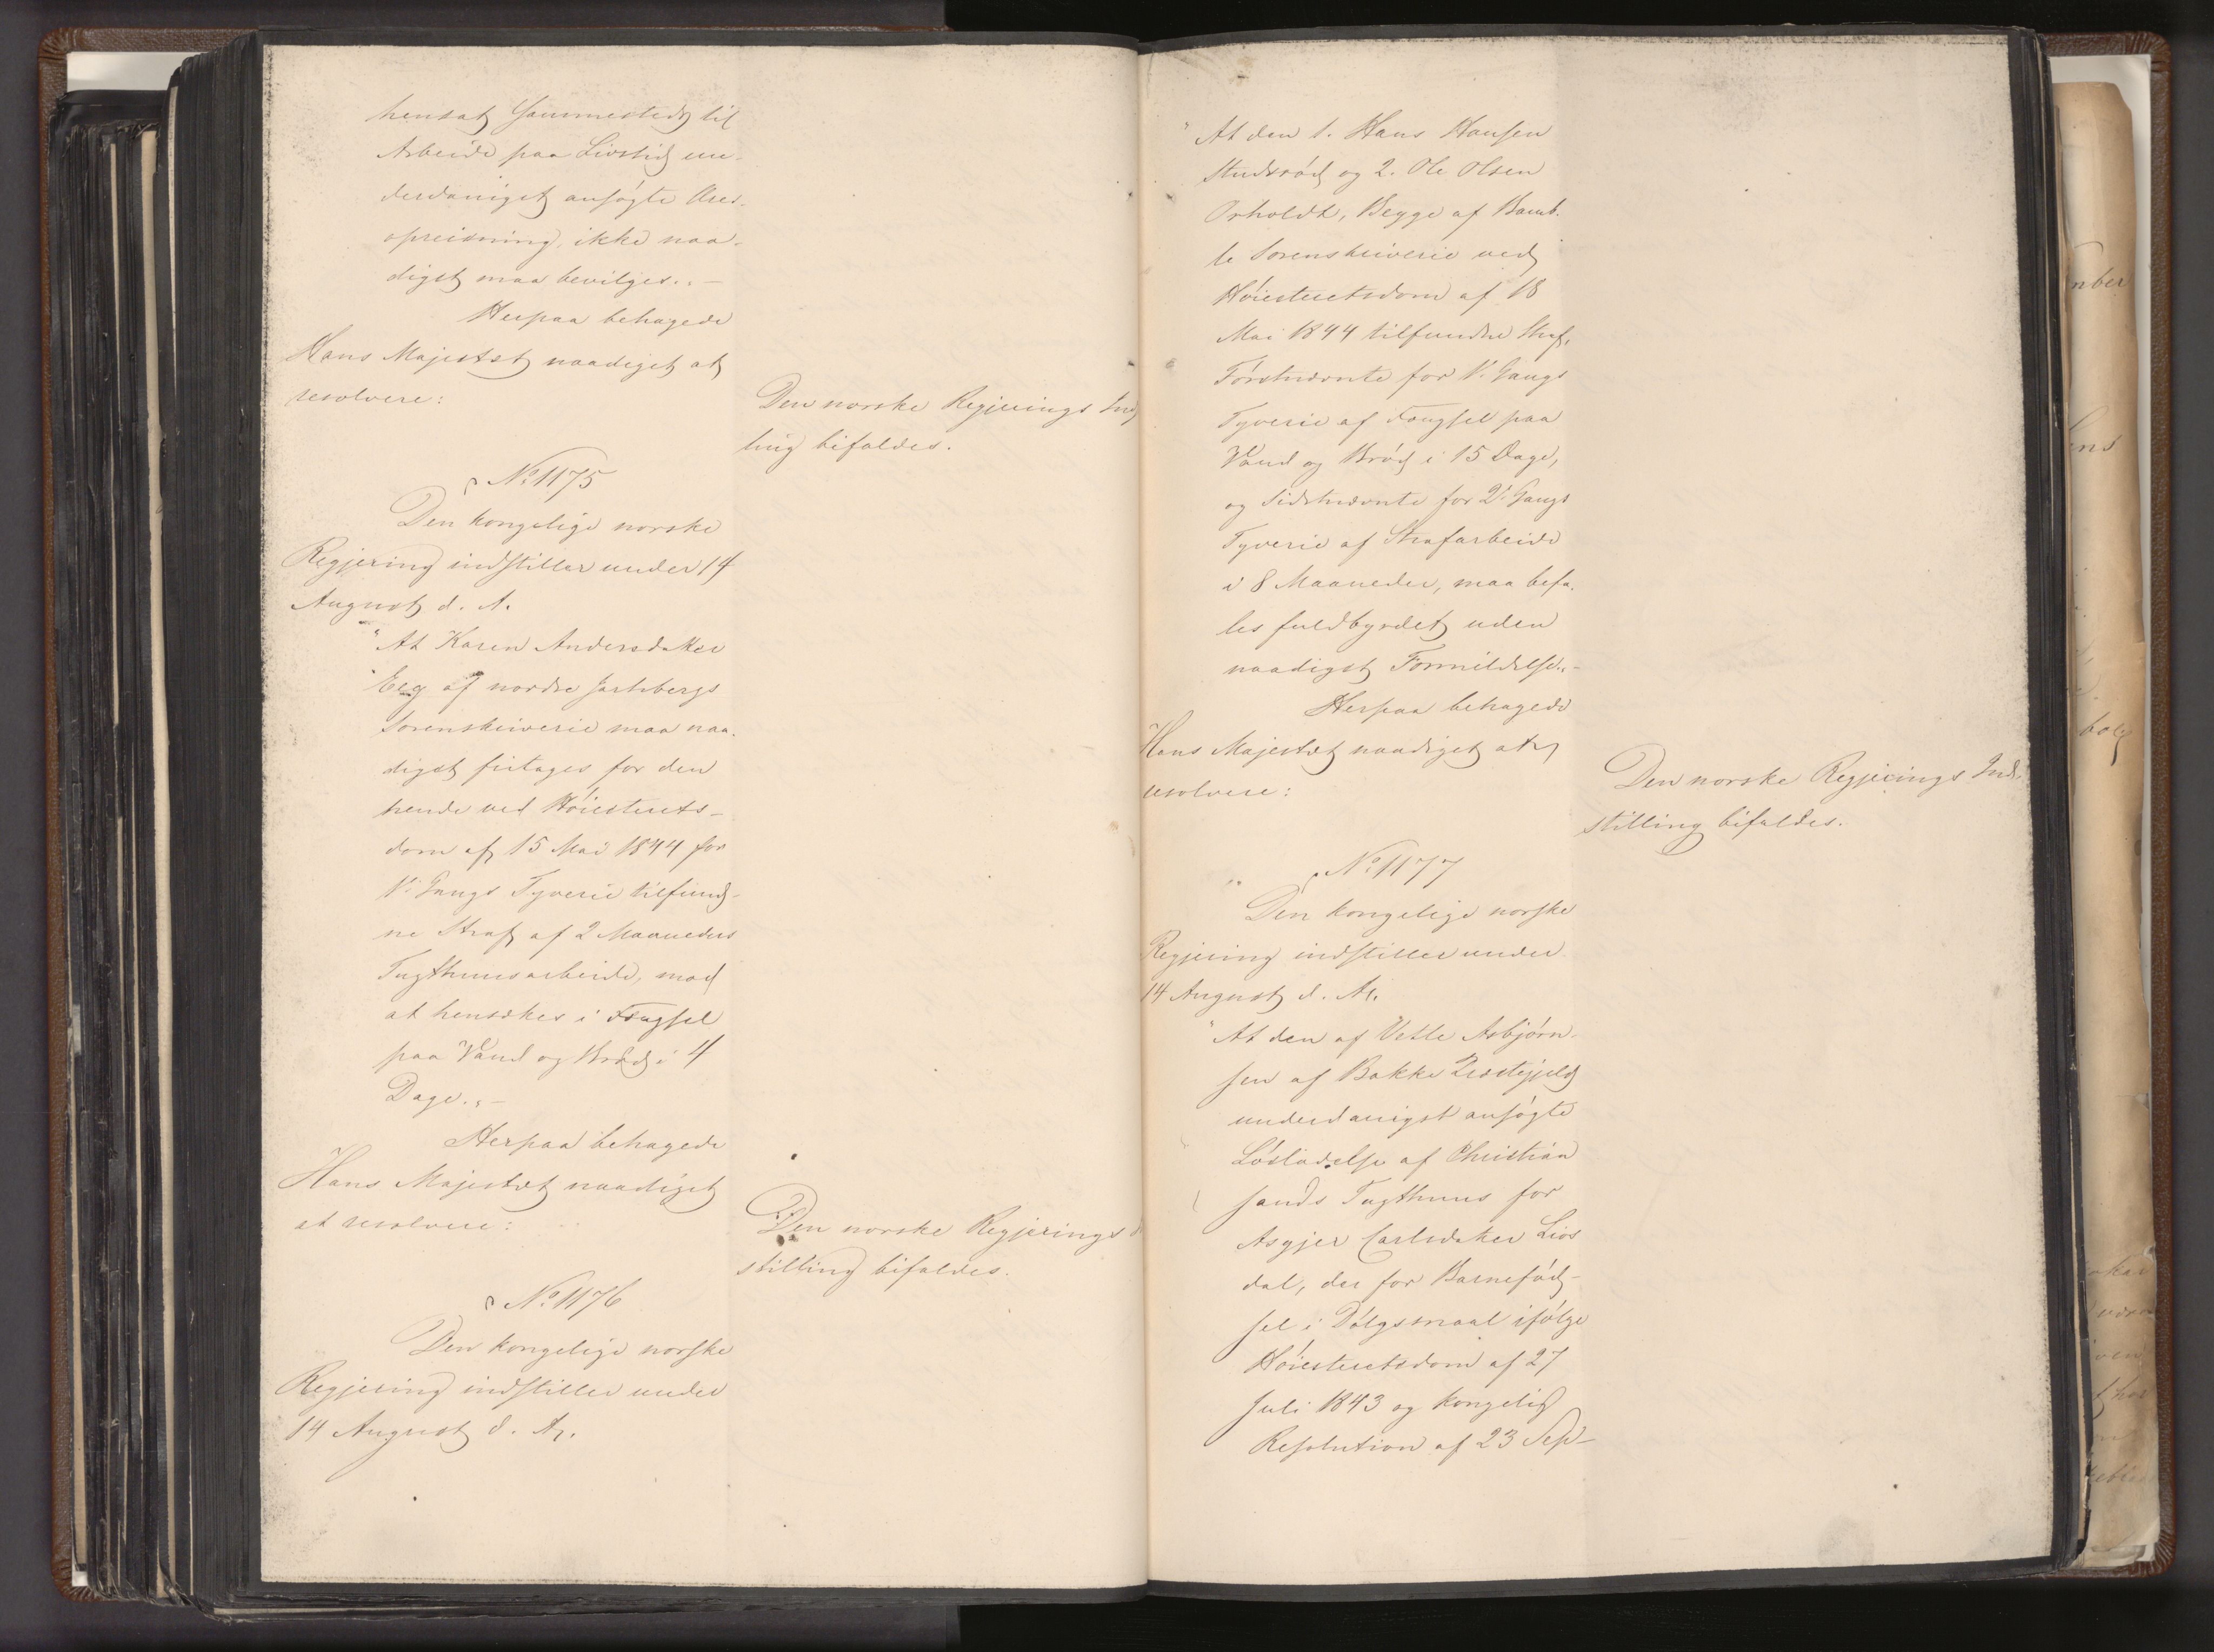 hensat sammesteds til
Arbeide paa Livstid un-
derdanigst ansøgte Æres-
opreisning, ikke naa-
digst maa bevilges." –
Herpaa behagede
Hans Majestæt naadigst at
resolvere:
Den norske Regjerings Ind
ling bifaldes.
No 1175
Den kongelige norske
Regjering indstiller under 14
August d. A.
"At Karen Andersdatter
Eeg af nordre Jarlsbergs
Sorenskriverie maa naa-
digst fritages for den
hende ved Høiesterets-
dom af 15 Mai 1844 for
1. Gangs Tyverie tilfund-
ne Straf af 2 Maaneders
Tugthuusarbeide, mod
at hensættes i Fængsel
paa Vand og Brød i 4
Dage." –
Herpaa behagede
Hans Majestæt naadigst
at resolvere:
Den norske Regjerings
stilling bifaldes.
No 1176
Den kongelige norske
Regjering indstiller under
14 August d. A.
"At den 1. Hans Hansen
Studsrød og 2. Ole Olsen
Orholdt, Begge af Bamb-
le Sorenskriverie ved
Høiesteretsdom af 18
Mai 1844 tilfundne Straf,
Førstnævnte for 1. Gangs
Tyverie af Fængsel paa
Vand og Brød i 15 Dage,
og Sidstnævnte for 2. Gangs
Tyverie af Strafarbeide
i 8 Maaneder, maa befa-
les fuldbyrdet uden
naadigst Formildelse." –
Herpaa behagede
Hans Majestæt naadigst at
resolvere:
Den norske Regjerings Ind-
stilling bifaldes.
No 1177
Den kongelige norske
Regjering indstiller under
14 August d. A.
"At den af Vetle Asbjørn-
sen af Bakke Præstegjeld
underdanigst ansøgte
Løsladelse af Christian
sands Tugthuus for
Asgjer Carlsdatter Lios
dal, der for Barnefød-
sel i Dølgsmaal ifølge
Høiesteretsdom af 27
Juli 1843 og kongelig
Resolution af 23 Sep-